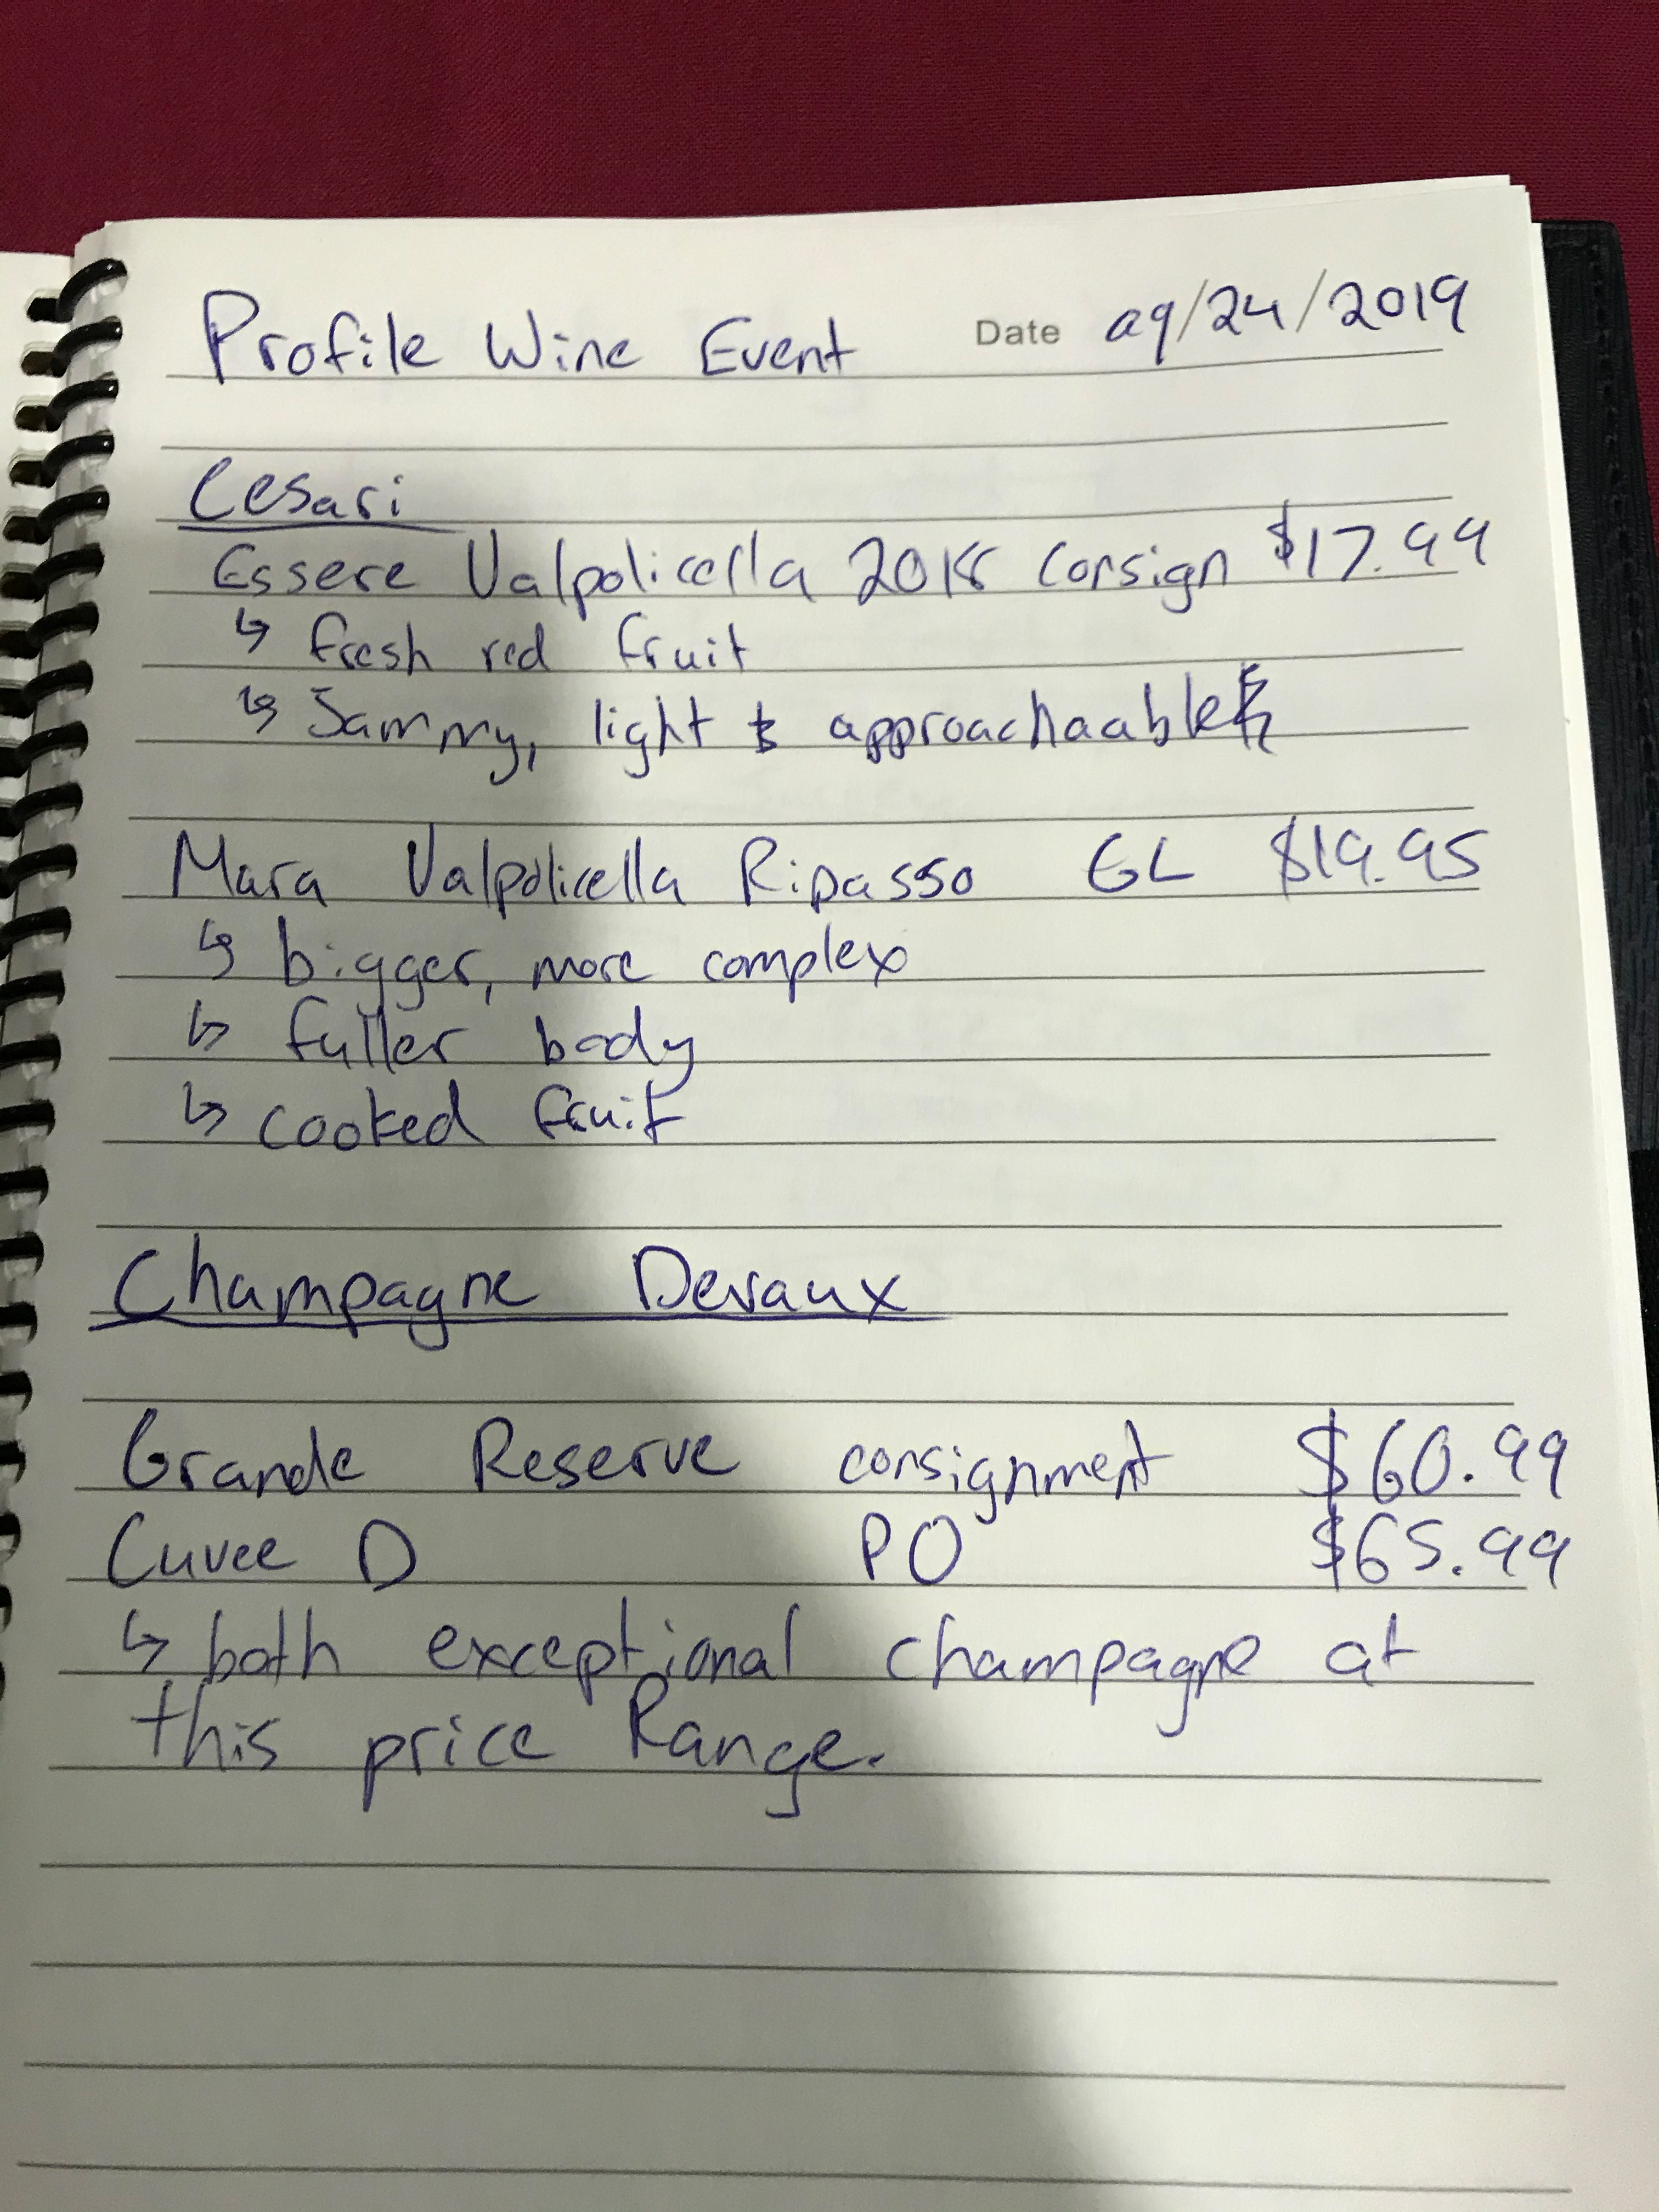 Profile Wine Event Date 09/24/2019
Cesari
Essere Valpolicella 2018 Consign $17.99
↳ fresh red fruit
↳ Jammy, light & approachaable
Mara Valpolicella Ripasso GL $19.95
↳ bigger, more complex
↳ fuller body
↳ cooked fruit
Champagne Devaux
Grande Reserve consignment $60.99
Cuvee D PO $65.99
↳ both exceptional champagne at
this price Range.